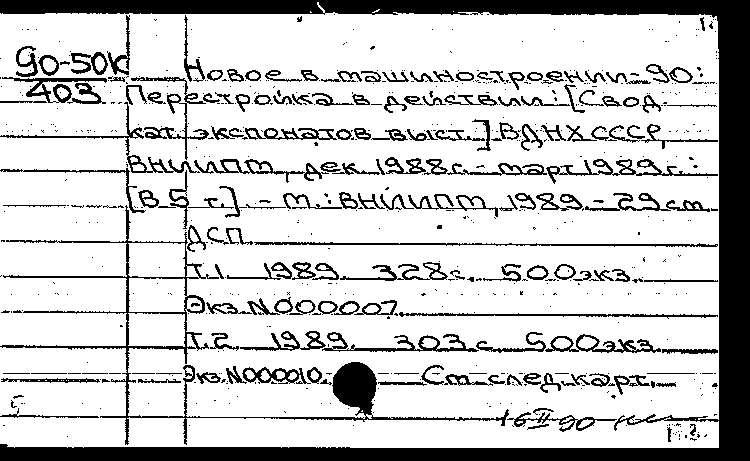 1.
90-50К
403
Новое в машиностроении-90:
Перестройка в действии: [Свод.
кат. экспонатов выст.] ВДНХ СССР,
ВНИИПМ, дек 1988г. - март 1989г.:
[В 5 т.]. - М.: ВНИИПМ, 1989. - 29см
ДСП
Т.1. 1989. 328с. 500экз.
Экз.N000007.
Т.2 1989. 303с 500экз
Экз.N000010. См след.карт.
5
16 II 90